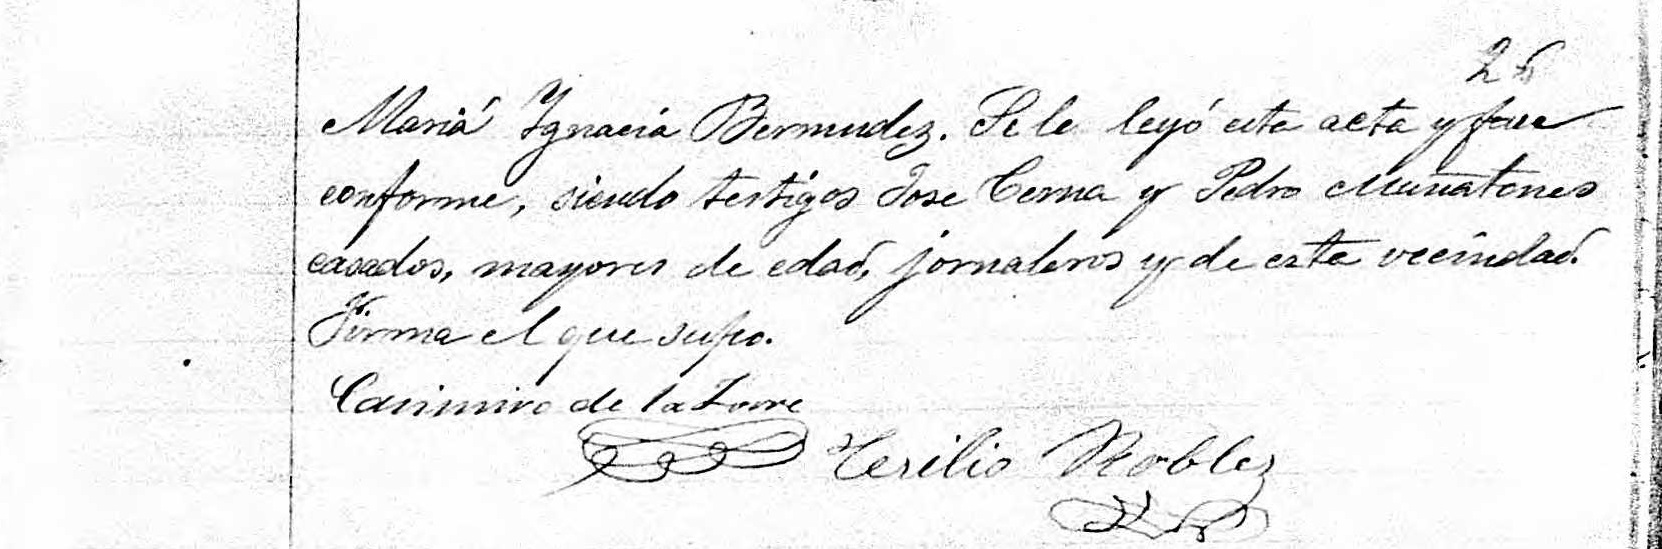 Mariá Ignacia Bermudez. Se le leyó esta acta y fue
conforme, siendo testigos Jose Cerna y Pedro Muñatones
casados, mayores de edad, jornaleros y de esta vecindad.
Firma el que supo.
Casimiro de la Torre
Robles